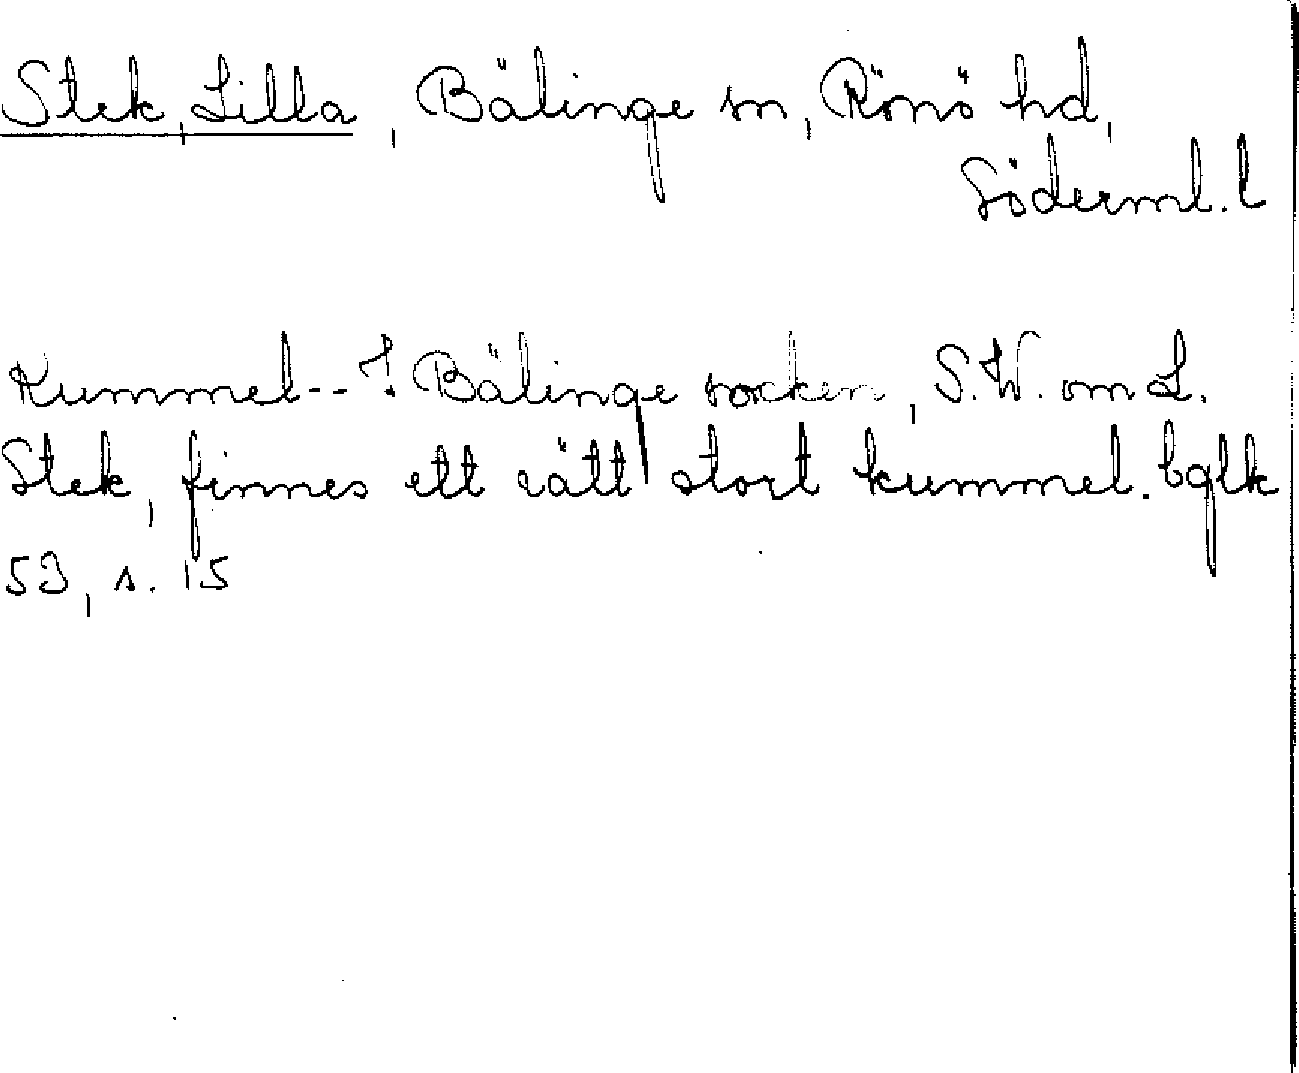 Stek, Lilla, Bälinge sn, Rönö hd,
Söderml. l
Kummel -- I Bälinge socken, S.W. om L.
Stek, finnes ett rätt stort kummel. bglk
53, s. 15